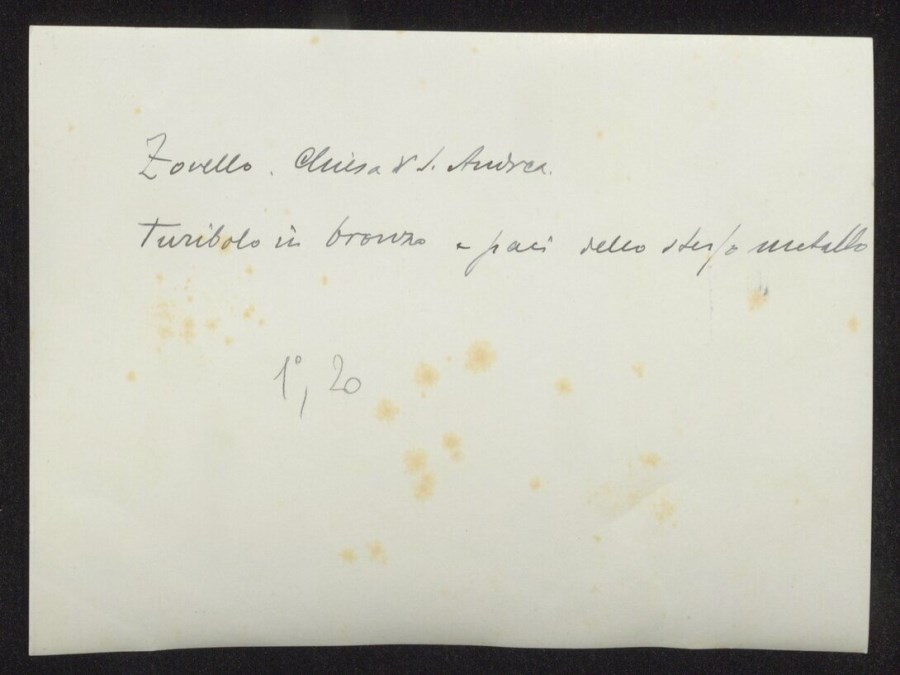 Zovello. Chiesa di S. Andrea.
Turibolo in bronzo e paci dello stesso metallo
1°, 20